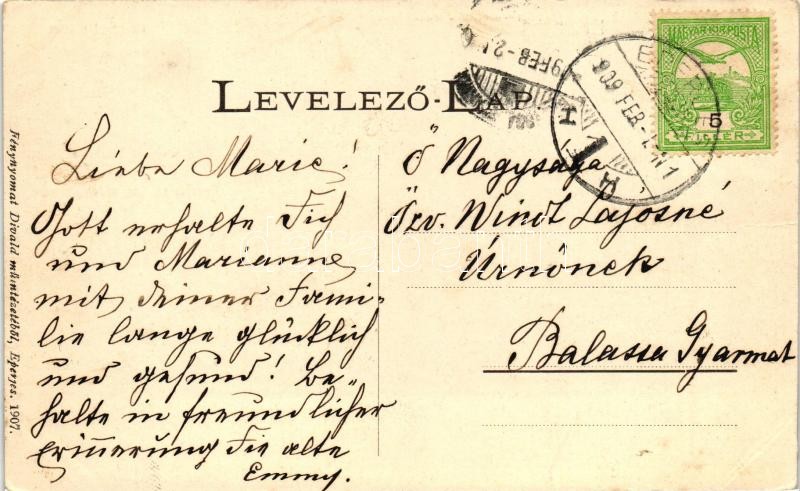 MAGYAR KIR. POSTA
5
FILLÉR
909 FEB
9 FEB-2
LEVELEZŐ-LAP
Liebe Marie!
Gott erhalte Dich
und Marianne
mit deiner Fami-
lie lange glücklich
und gesund! Be-
halte in freundlicher
Erinnerung Die alte
Emmy.
Ő Nagysága
Özv. Windt Lajosné
Úrnőnek
Balassa Gyarmat
Fénynyomat Divald műintézetéből, Eperjes. 1907.